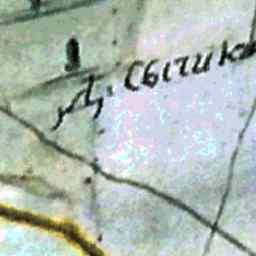 Д. Сычик